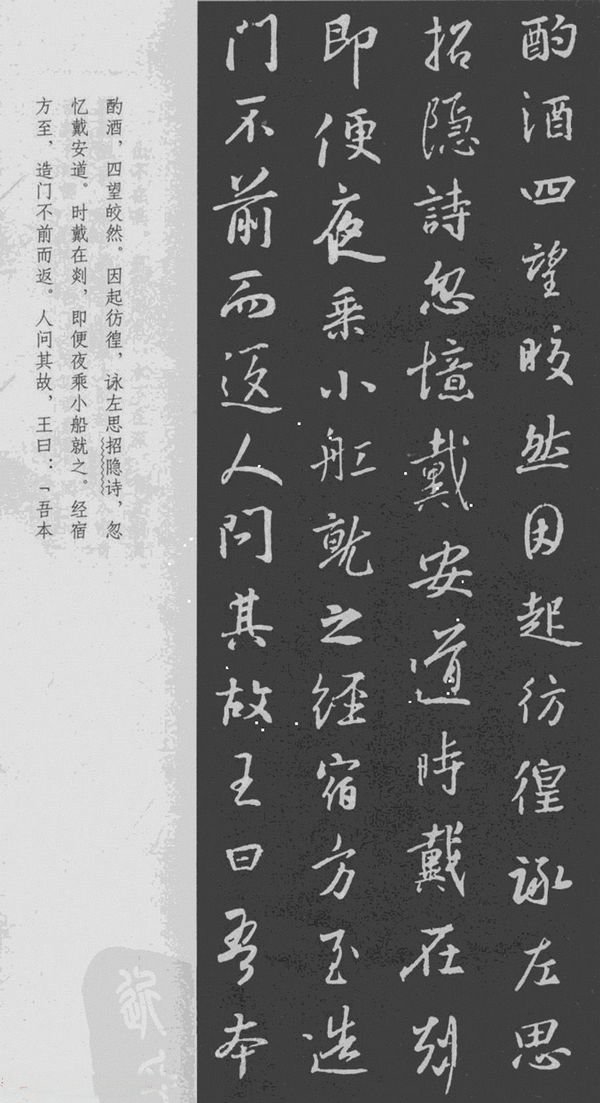 酌酒四望晈然因起彷徨詠左思
招隱詩忽憶戴安道時戴在剡
即便夜乗小舡就之經宿方至造
門不前而返人問其故王曰吾本
酌酒，四望皎然。因起彷徨，咏左思招隐诗，忽
忆戴安道。时戴在剡，即便夜乘小船就之。经宿
方至，造门不前而返。人问其故，王曰：「吾本